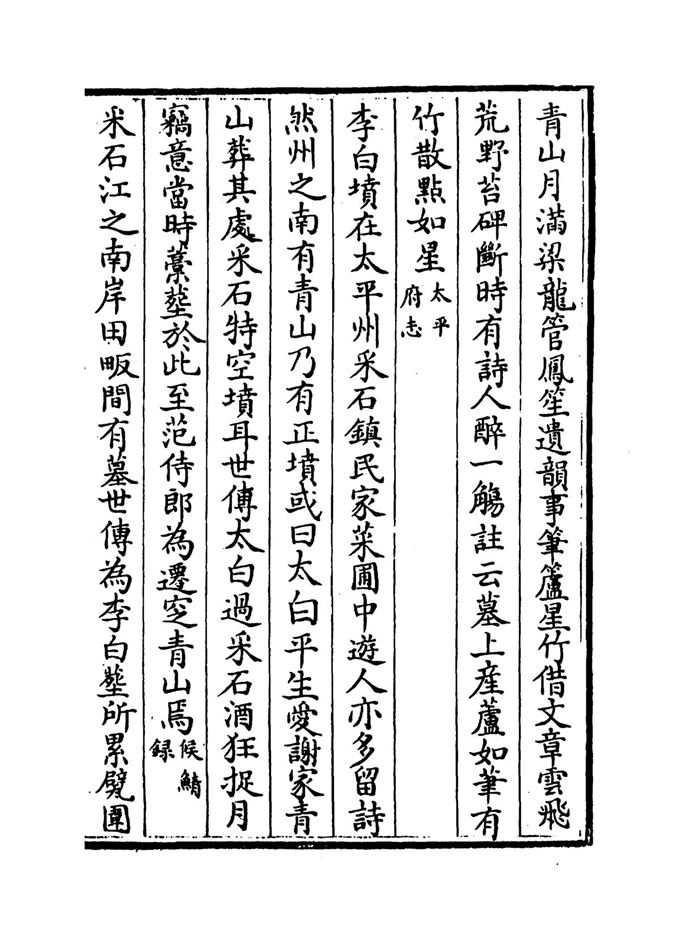 青山月滿梁龍管鳳笙遺韻事筆籚星竹借文章雲飛
荒野苔碑斷時有詩人醉一觴註云墓上産蘆如筆有
竹散點如星太平府志
李白墳在太平州采石鎮民家菜圃中遊人亦多留詩
然州之南有青山乃有正墳或曰太白平生愛謝家青
山葬其處采石特空墳耳世傳太白過采石酒狂捉月
竊意當時藁塟於此至范侍郎為遷窆青山焉候鯖録
采石江之南岸田畈間有墓世傳為李白塟所累甓圍